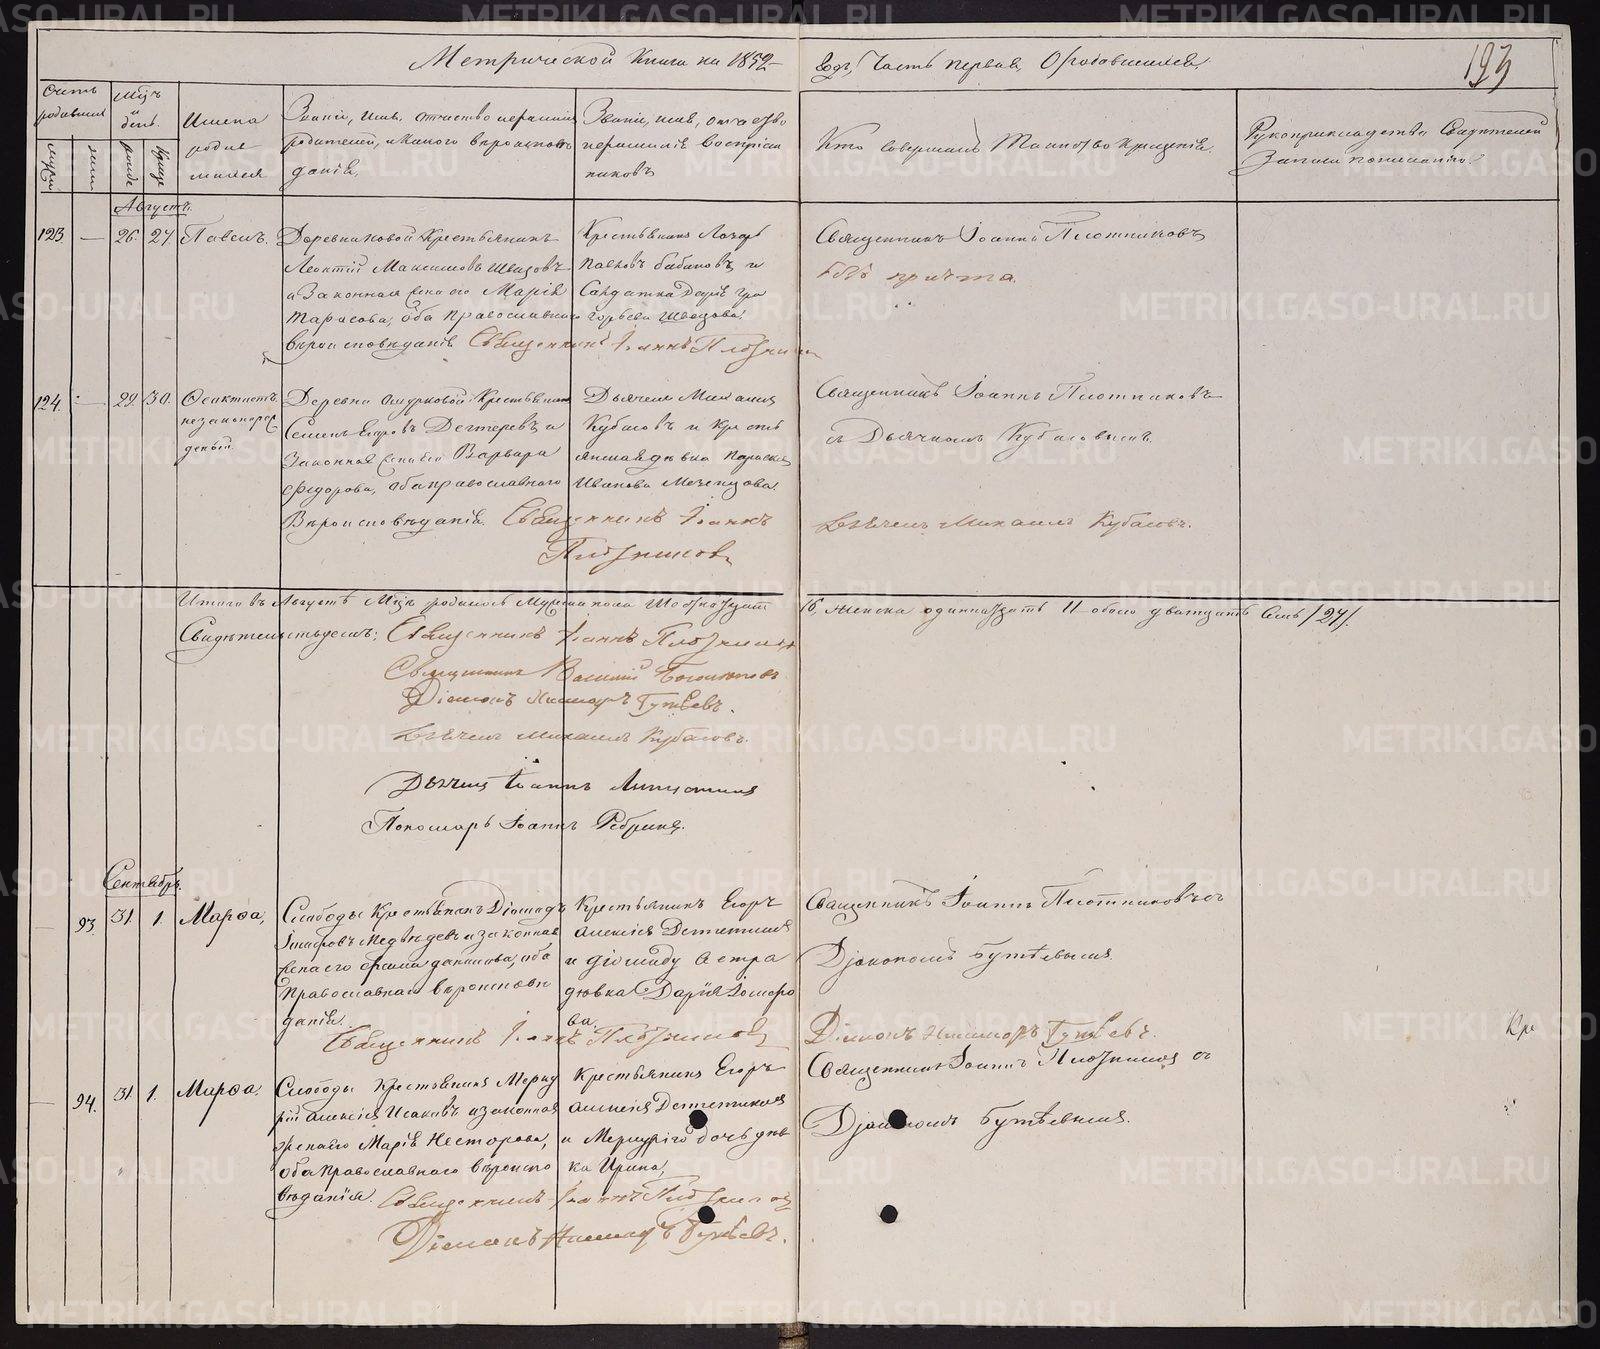 Метрической Книги на 1852
годъ, Часть первая, О родившихся.
193
Счетъ родившихся
Мцъ и день.
Имена родив шихся
Званіе, имя, отчество и фамилія родителей, и какого вѣроисповѣ данія.
Званіе, имя, отчество и фамилія воспріем никовъ
Кто совершалъ Таинство крещенія.
Рукоприкладство Свидѣтелей записи по желанію.
Августъ.
123. — 26. 27. Павелъ.
Деревни Новой Крестьянинъ
Леонтій Максимовъ Швецовъ
и Законная жена его Марія
Тарасова, оба православнаго
вѣроисповѣданія. Священникъ Іоаннъ Плотниковъ
Крестьянинъ Лазарь
и
Солдатка Дарія Гри
горьева Швецова.
Священникъ Іоаннъ Плотниковъ
безъ причта.
124. — 29. 30. Феоктистъ незаконорож денный.
Деревни Крестьянинъ
Семенъ Егоровъ Дегтеревъ и
Законная жена его Варвара
Федорова, оба православнаго
Вѣроисповѣданія. Священникъ Іоаннъ
Плотниковъ
Дьячекъ Михаилъ
Кубасовъ и Кресть
янская дѣвка Параскева
Иванова Мезенцова.
Священникъ Іоаннъ Плотниковъ
съ Дьячкомъ Кубасовымъ.
Дьячекъ Михаилъ Кубасовъ.
Итого въ Августѣ Мцѣ родилось Мужеска пола Шестнадцать
16, Женска одиннадцать И обоего двадцать Семь /27/.
Свидѣтельствуемъ: Священникъ Іоаннъ Плотниковъ
Священникъ Василій
Діаконъ Никаноръ Бутѣевъ.
Дьячекъ Михаилъ Кубасовъ.
Дьячекъ Іоаннъ
Пономарь Іоаннъ Ребринъ.
Сентябрь.
— 93. 31. 1. Марфа,
Слободы Крестьянинъ Діомидъ
Медвѣдевъ и законная
жена его оба
Православнаго вѣроисповѣ
данія.
Священникъ Іоаннъ Плотниковъ
Крестьянинъ Егоръ
Алексіевъ
и Діомиду Сестра
дѣвка Дарія
ва.
Священникъ Іоаннъ Плотниковъ съ
Діакономъ Бутѣевымъ.
Діаконъ Никаноръ Бутѣевъ.
— 94. 31. 1. Марфа.
Слободы Крестьянинъ Мерку
рій Алексіевъ Исаковъ и законная
жена его Марія Несторова,
оба православнаго вѣроиспо
вѣданія. Священникъ Іоаннъ Плотниковъ
Діаконъ Никаноръ Бутѣевъ.
Крестьянинъ Егоръ
Алексіевъ
и Меркурія дочь дѣв
ка Ирина,
Священникъ Іоаннъ Плотниковъ съ
Діакономъ Бутѣевымъ.
METRIKI.GASO-URAL.RU